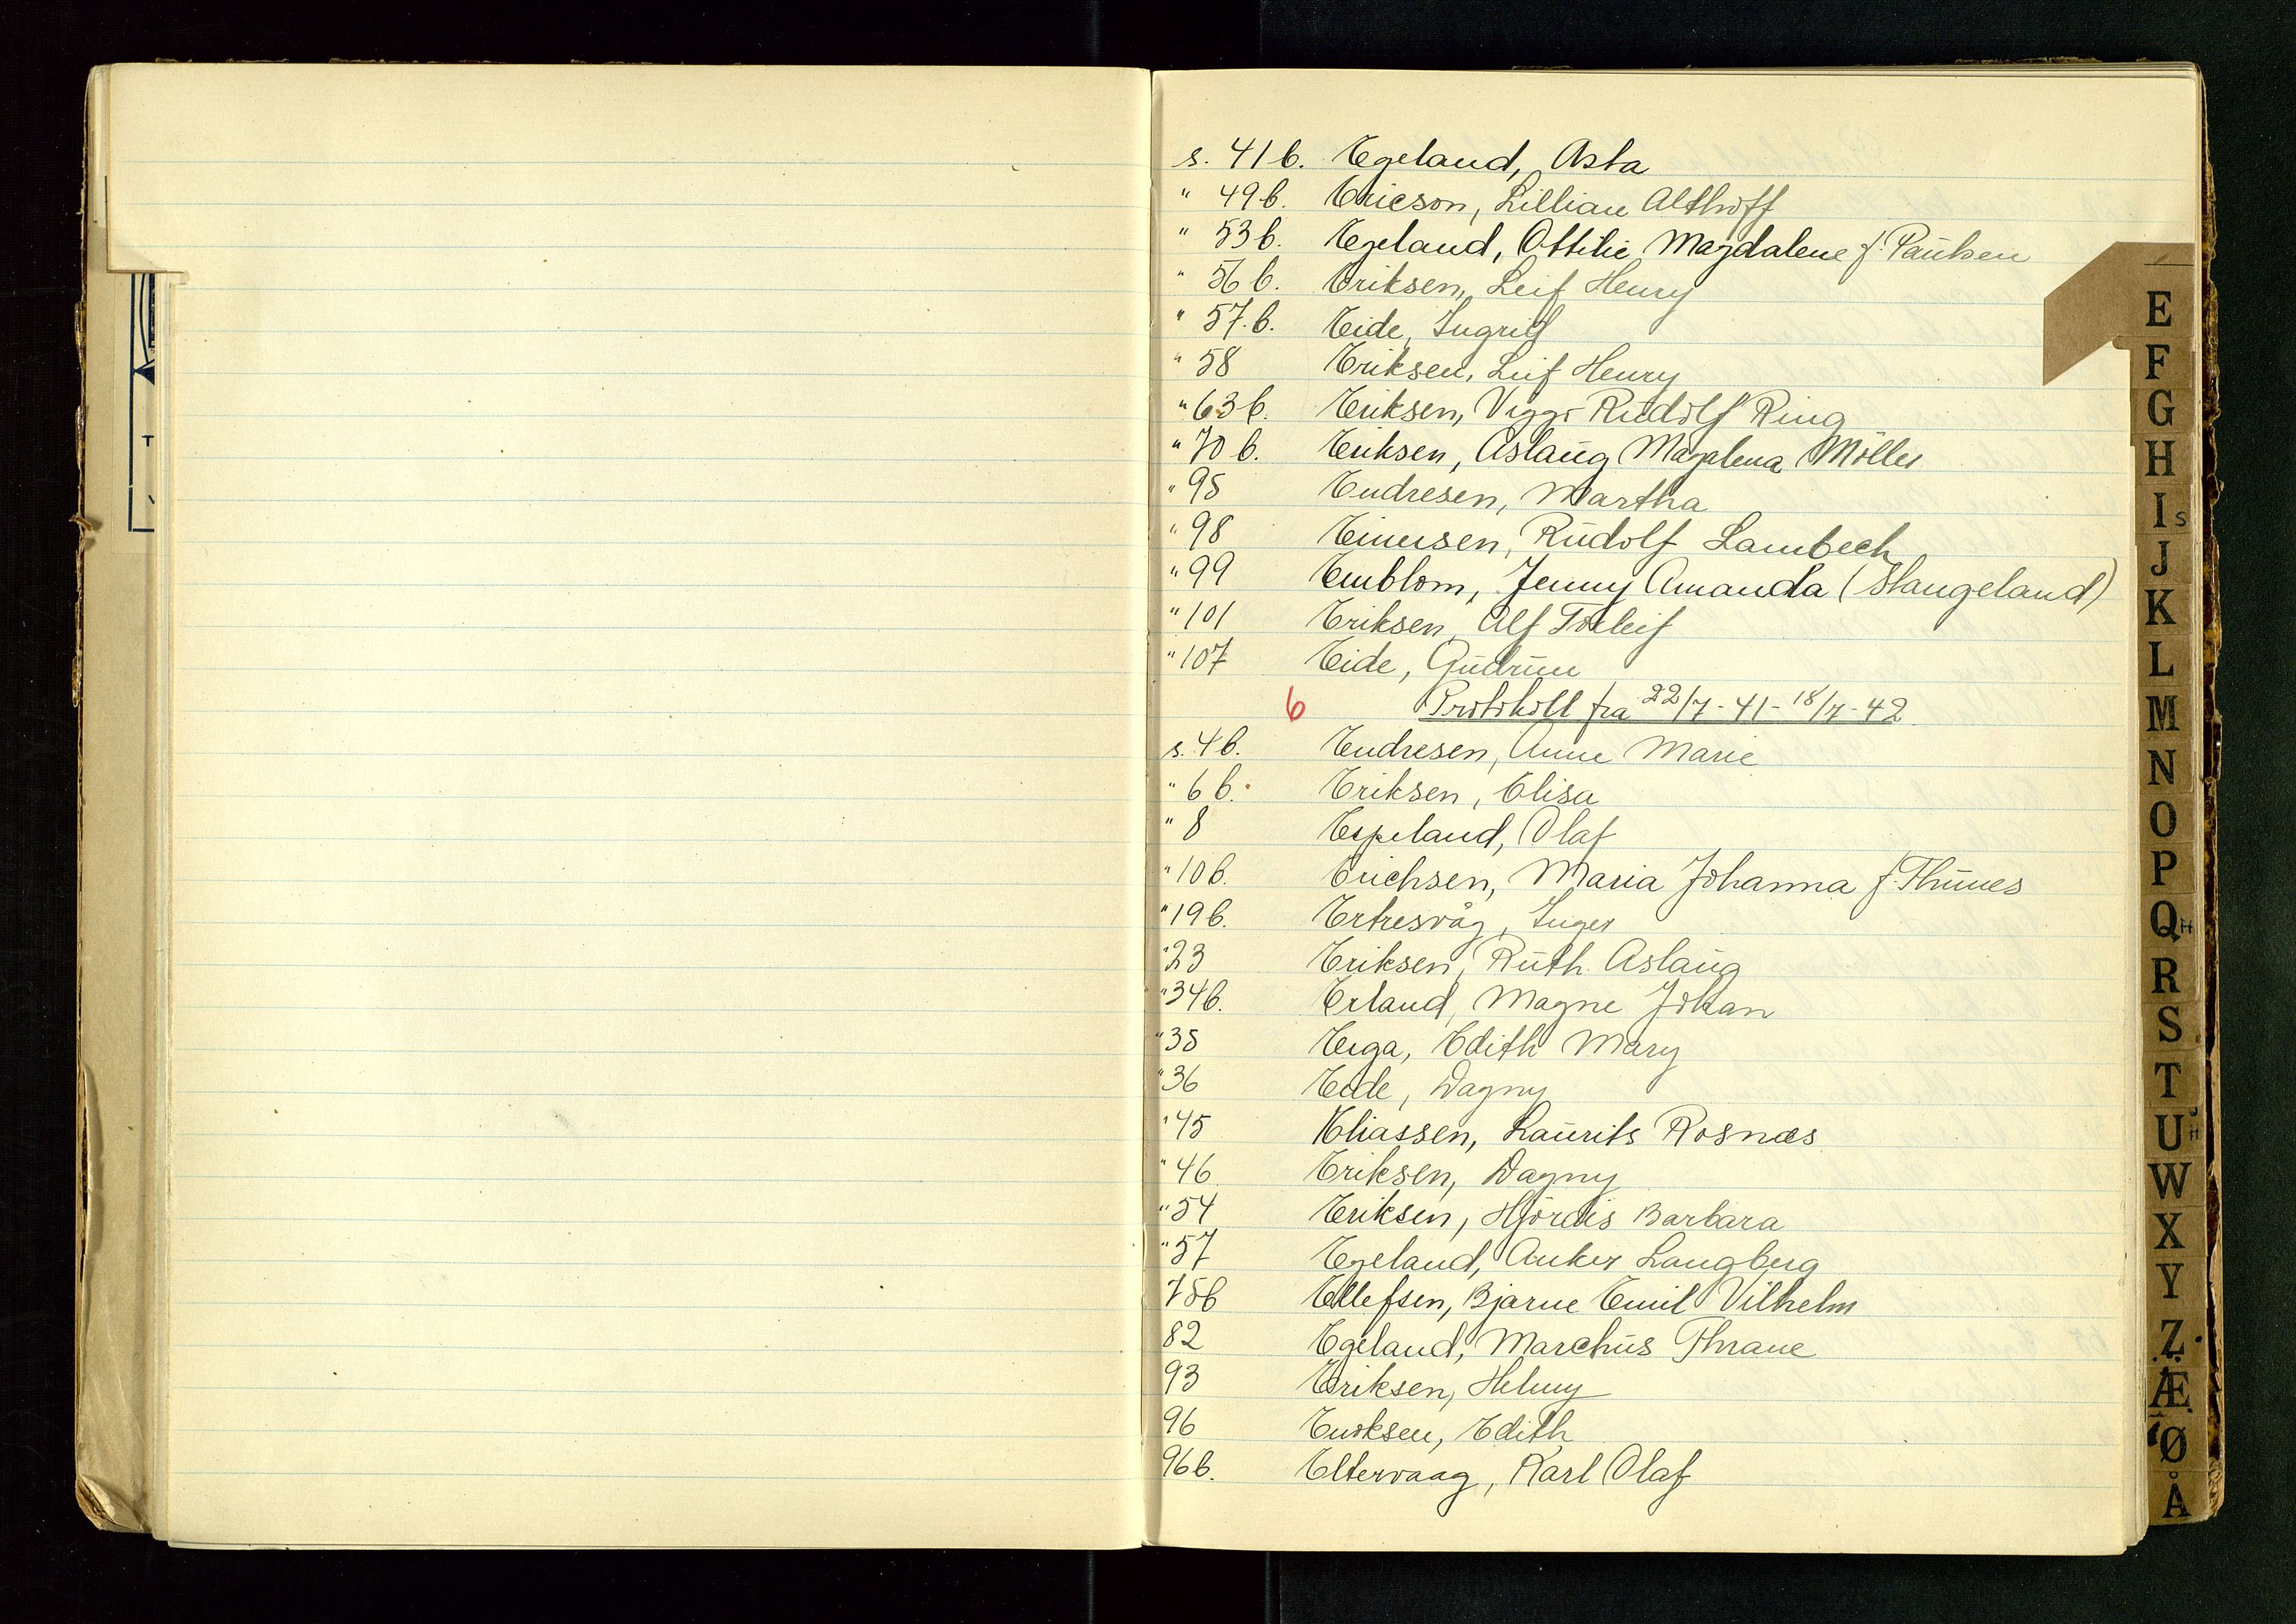 s. 41 b. Egeland, Asta
" 49 b. Ericson, Lillian Althoff
" 53 b. Egeland, Ottilie Magdalene f. Paulsen
" 56 b. Eriksen, Leif Henry
" 57. b. Eide, Ingrid
" 58 Eriksen, Leif Henry
" 63 b. Eriksen, Viggo Rudolf Ring
" 70 b. Eriksen, Aslaug Magalena Möller
" 95 Endresen, Martha
" 98 Einersen, Rudolf Lambech
" 99 Emblom, Jenny Amanda (Stangeland)
" 101 Eriksen, Alf Torleif
" 107 Eide, Gudrun
6 Protokoll fra 22/7-41-18/7-42
s. 4 b. Endresen, Anne Marie
" 6 b. Eriksen, Elisa
" 8 Espeland, Olaf
" 10 b. Erichsen, Maria Johanna f. Thunes
" 19 b. Ertresvåg, Inger
" 23 Eriksen, Ruth Aslaug
" 34 b. Erland, Magne Johan
" 35 Eiga, Edith Mary
" 36 Eide, Dagny
" 45 Eliassen, Laurits Rosnæs
" 46 Eriksen, Dagny
" 54 Eriksen, Hjördis Barbara
" 57 Egeland, Anker Langberg
75 b Ellefsen, Bjarne Emil Vilhelm
82 Egeland, Marchus Thrane
93 Eriksen, Helmy
96 Eriksen, Edith
96 b. Eltervaag, Karl Olaf
E
F
G
H
I S
J
K
L
M
N
O
P
Q H
R
S
T
U
W
X
Y
Z
Æ
Ø
Å